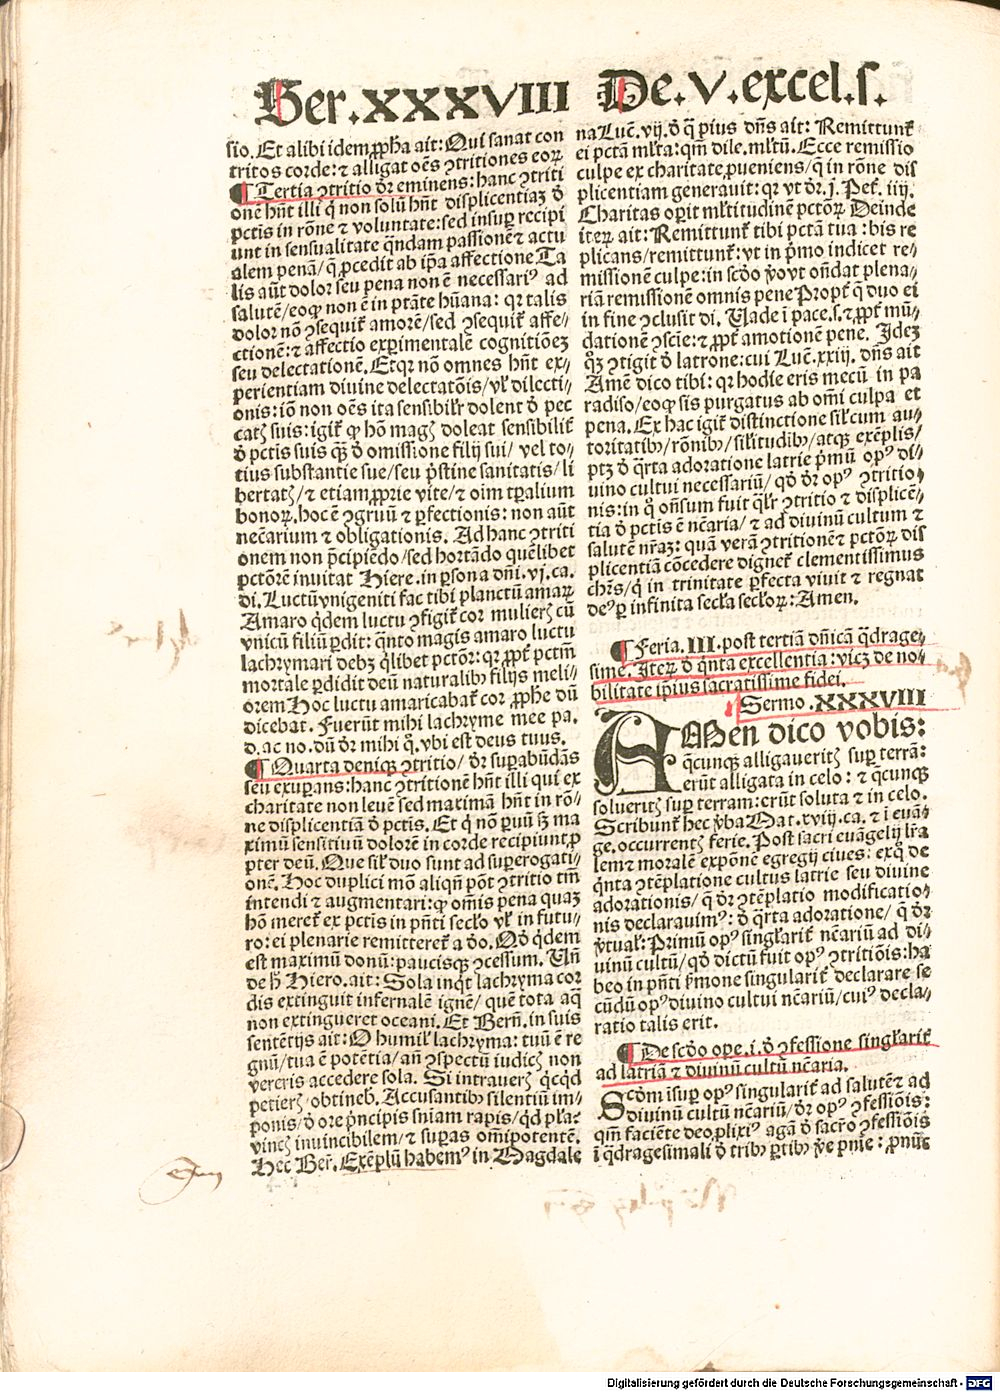 Ser. XXXVIII De. V. excel. s.
sio. Et alibi idem ꝓpha ait: Qui sanat con
tritos corde: ⁊ alligat oēs ꝯtritiones eoꝝ
¶ Tertia ꝯtritio dr̄ eminens: hanc ꝯtriti
onē hn̄t illi q̄ non solū hn̄t displicentiaꝫ ꝺ
pctis in rōne ⁊ voluntate: sed insuꝑ recipi
unt in sensualitate q̄ndam passionē ⁊ actu
alem penā/ q̄ ꝓcedit ab ip̄a affectione Ta
lis aūt dolor seu pena non ē necessariꝰ ad
salutē/ eoqꝫ non ē in ptāte hūana: qr talis
dolor nō ꝯsequit̄ amorē/ sed ꝯsequit̄ affe⸗
ctionē: ⁊ affectio exꝑimentalē cognitiōeꝫ
seu delectationē. Et qr nō omnes hn̄t ex⸗
perientiam diuine delectatōis/ vl̄ dilecti⸗
onis: iō non oēs ita sensibilr̄ dolent ꝺ pec
catꝭ suis: igit̄ qꝫ hō magꝭ doleat sensibilit̄
ꝺ pctis suis qꝫ̄ ꝺ omissione filij sui/ vel to⸗
tius substantie sue/ seu pristine sanitatis/ li
bertatꝭ/ ⁊ etiam ꝓprie vite/ ⁊ oīm tꝑalium
honoꝝ, hoc ē ꝯgruū ⁊ ꝑfectionis: non aūt
necr̄arium ⁊ obligationis. Ad hanc ꝯtriti
onem non p̄cipiēdo/ sed hortādo quēlibet
pctōrē inuitat Hiere. in ꝑsona dn̄i. vj. ca.
di. Luctū vnigeniti fac tibi planctū amaꝝ
Amaro q̄dem luctu ꝯfigit̄ cor mulierꝭ cū
vnicū filiū ꝑdit: q̄nto magis amaro luctu
lachrymari debꝫ q̄libet pctōr: qr ꝓpt̄ pctm̄
mortale ꝑdidit deū naturalibꝰ filijs meli⸗
orem Hoc luctu amaricabat̄ cor ꝓphe dū
dicebat. Fuerūt mihi lachryme mee pa.
d. ac no. dū dr̄ mihi q. vbi est deus tuus.
¶ Quarta deniqꝫ ꝯtritio/ dr̄ suꝑabūdās
seu exuꝑans: hanc ꝯtritionē hn̄t illi qui ex
charitate non leuē sed maximā hn̄t in rō⸗
ne displicentiā ꝺ pctis. Et q̄ nō ꝑuū sꝫ ma
ximū sensitiuū dolorē in corde recipiunt ꝓ
pter deū. Que sil̄ duo sunt ad suꝑerogati⸗
onē. Hoc duplici mō aliqn̄ pōt ꝯtritio tm̄
intendi ⁊ augmentari: qꝫ om̄is pena quaꝫ
hō meret̄ ex pctis in pn̄ti seclo vl̄ in futu⸗
ro: ei plenarie remitteret̄ a ꝺo. Qꝺ q̄dem
est maximū donū: paucisqꝫ ꝯcessum. Vn̄
de bꝭ Hiero. ait: Sola inqt lachryma cor
dis extinguit infernalē ignē/ quē tota aq̄
non extingueret oceani. Et Bern̄. in suis
sentētijs ait: O humil̄ lachryma: tuū ē re
gnū/ tua ē potētia/ an̄ ꝯspectū iudicꝭ non
vereris accedere sola. Si intrauerꝭ qcqd
petierꝭ obtineb. Accusantibꝰ silentiū im⸗
ponis/ ꝺ ore p̄ncipis sn̄iam rapis/ qd pla⸗
vincꝭ inuincibilem/ ⁊ suꝑas om̄ipotentē.
Hec Ber̄. Exēplū habemꝰ in Magdale
na Luc̄. vij. ꝺ q̄ pius dn̄s ait: Remittunt̄
ei pctā ml̄ta: qm̄ dile. ml̄tū. Ecce remissio
culpe ex charitate ꝓueniens/ q̄ in rōne dis
plicentiam generauit: qr vt dr̄. j. Pet̄. iiij.
Charitas oꝑit ml̄titudinē pctōꝝ Deinde
iteꝝ ait: Remittunt̄ tibi pctā tua: bis re
plicans/ remittunt̄: vt in p̄mo indicet re⸗
missionē culpe: in scꝺo ꝟo vt on̄dat plena⸗
riā remissionē omnis pene Propt̄ q̄ duo ei
in fine ꝯclusit di. Vade ī pace. s. ⁊ ꝓpt̄ mū⸗
dationē ꝯscie: ⁊ ꝓpt̄ amotionē pene. Jdeꝫ
qꝫ ꝯtigit ꝺ latrone: cui Luc̄. xxiij. dn̄s ait
Amē dico tibi: qr hodie eris mecū in pa
radiso/ eoqꝫ sis purgatus ab om̄i culpa et
pena. Ex hac igit̄ distinctione sil̄ cum au⸗
toritatibꝰ/ rōnibꝰ/ sil̄itudibꝰ/ atqꝫ exēplis/
ptꝫ ꝺ q̄rta adoratione latrie p̄mū opꝰ di⸗
uino cultui necessariū/ qꝺ dr̄ opꝰ ꝯtritio⸗
nis: in q̄ on̄sum fuit qlr̄ ꝯtritio ⁊ displicē⸗
tia ꝺ pctis ē ncr̄aria/ ⁊ ad diuinū cultum ⁊
salutē nr̄aꝫ: quā verā ꝯtritionē ⁊ pctōꝝ dis
plicentiā cōcedere dignet̄ clementissimus
chr̄s/ q̄ in trinitate ꝑfecta viuit ⁊ regnat
deꝰ ꝑ infinita secl̄a secl̄oꝝ: Amen.
¶ Feria. III. post tertiā dn̄icā q̄drage⸗
sime. Iteꝝ ꝺ q̄nta excellentia: vicꝫ de no⸗
bilitate ip̄ius sacratissime fidei.
Sermo. XXXVIII
AMen dico vobis:
q̄cunqꝫ alligaueritꝭ suꝑ terrā:
erūt alligata in celo: ⁊ q̄cunqꝫ
solueritꝭ suꝑ terram: erūt soluta ⁊ in celo.
Scribunt̄ hec ꝟba Mat. xviij. ca. ⁊ ī euā⸗
ge. occurrentꝭ ferie. Post sacri euāgelij lr̄a
lem ⁊ moralē expōnē egregij ciues: exq̄ de
q̄nta ꝯtēplatione cultus latrie seu diuine
adorationis/ q̄ dr̄ ꝯtēplatio modificatio⸗
nis declarauimꝰ: ꝺ q̄rta adoratione/ q̄ dr̄
ꝟtual̄: Primū opꝰ singl̄arit̄ ncr̄iū ad di⸗
uinū cultū/ qꝺ dictū fuit opꝰ ꝯtritiōis: ha
beo in pn̄ti ẜmone singularit̄ declarare se
cūdū opꝰ diuino cultui ncr̄iū/ cuiꝰ decla⸗
ratio talis erit.
¶ De scꝺo ope. i. ꝺ ꝯfessione singl̄arit̄
ad latriā ⁊ diuinū cultū ncr̄aria.
Scdm̄ isuꝑ opꝰ singularit̄ ad salutē ⁊ ad
diuinū cultū ncr̄iū/ dr̄ opꝰ ꝯfessiōis:
qm̄ faciēte deo ꝓlixiꝰ agā ꝺ sacr̄o ꝯfessiōis
ī q̄dragesimali ꝺ tribꝰ ꝑtibꝰ ꝟe pnīe: ꝓnūc